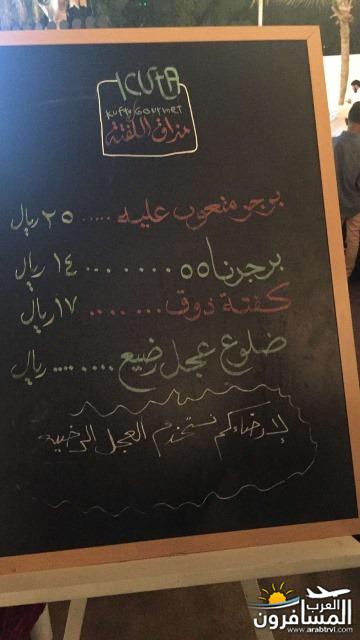 KUfTA
Kufta Gourmet
مذاق الكفتة
برجر متعوب عليه ..... ٢٥ ريال
برجرنا ٥٥ ........ ١٤ ريال
كفتة ذوق ...... ١٧ ريال
ضلوع عجل رضيع ........ ريال
لإرضاءكم نستخدم العجل الرضيع
العرب
المسافرون
www.arabtrvl.com